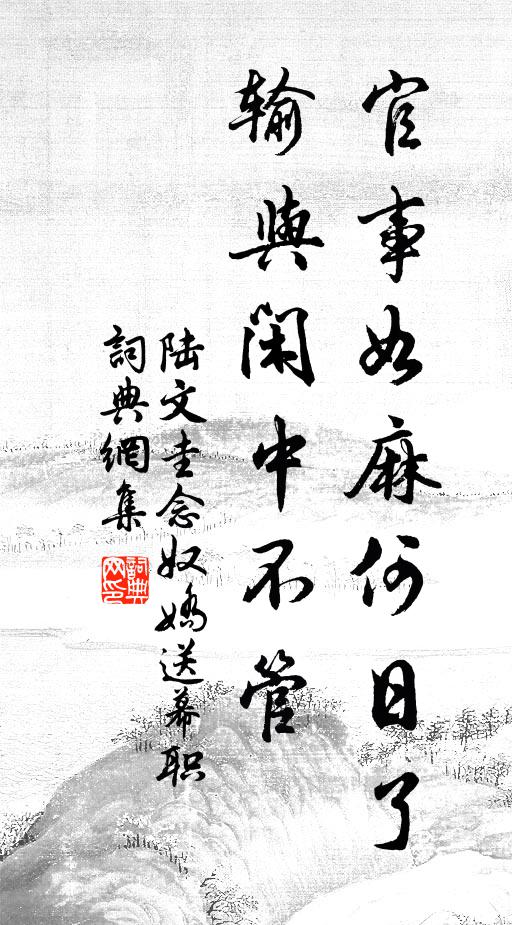 官事如麻何日了
輸與閑中不管
陆文圭念奴嬌送幕职
詞典網集
詞典網印